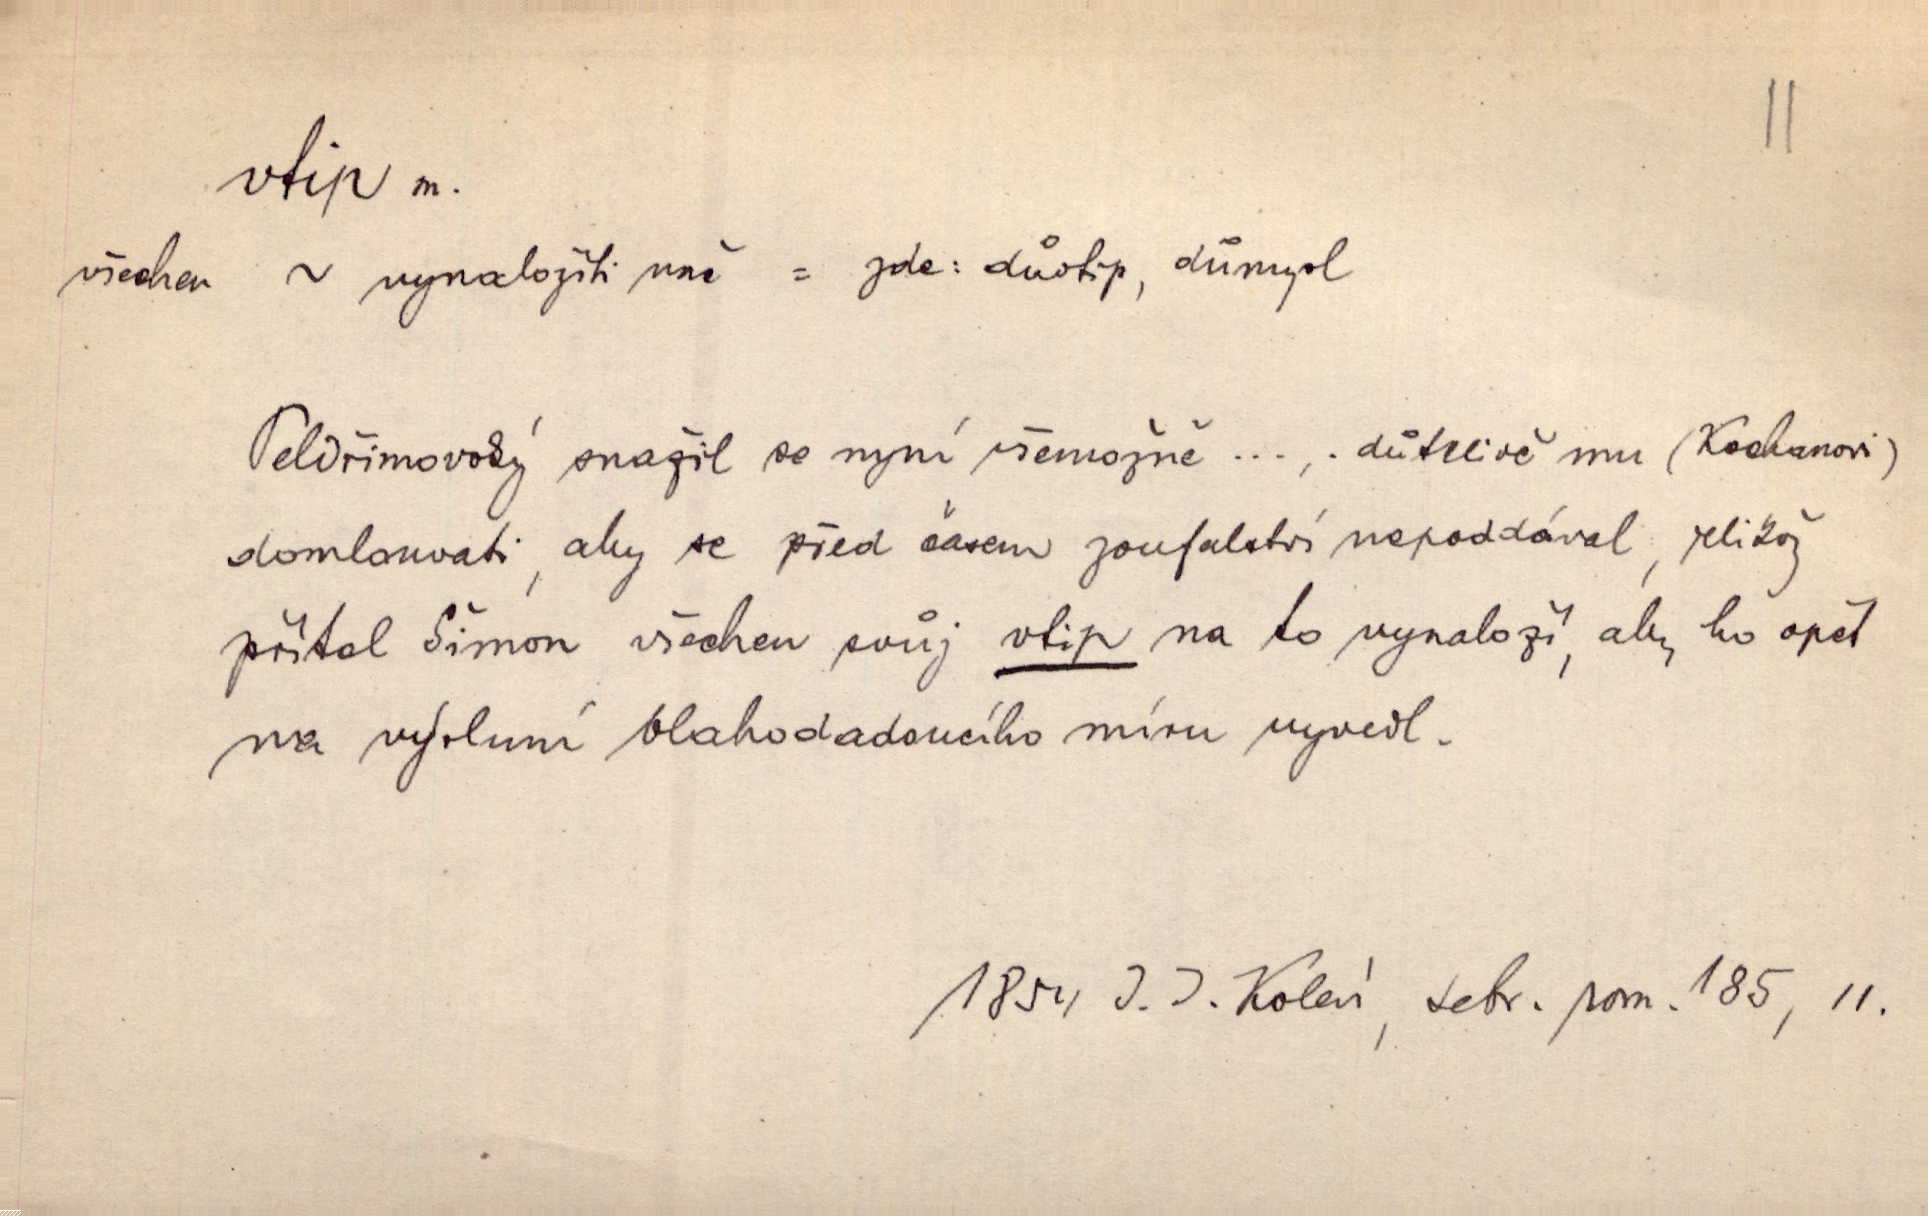 11
vtip m.
všechen ~ vynaložiti nač = zde: důvtip, důmysl
Peldřimovský snažil se nyní všemožně ..., . důtklivě mu (Kochanovi)
domlouvati, aby se před časem zoufalství nepoddával, jelikož
přítel Šimon všechen svůj vtip na to vynaloží, aby ho opět
na výsluní blahodadoucího míru vyvedl.
1854 J. J. Kolár, sebr. pom. 185, 11.